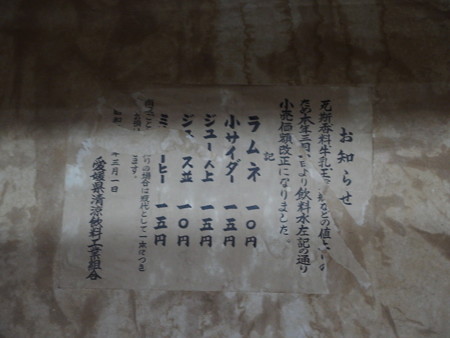 お知らせ
瓦斯香料牛乳王冠などの値上りの
ため本年三月一日より飲料水左記の通り
小売価額改正になりました。
記
ラムネ 一〇円
小サイダー 一五円
ジュース上 一五円
ジュース並 一〇円
ミ ーヒー 一五円
の場合は瓶代として一本につき
ます。
年三月一日
愛媛県清涼飲料工業組合